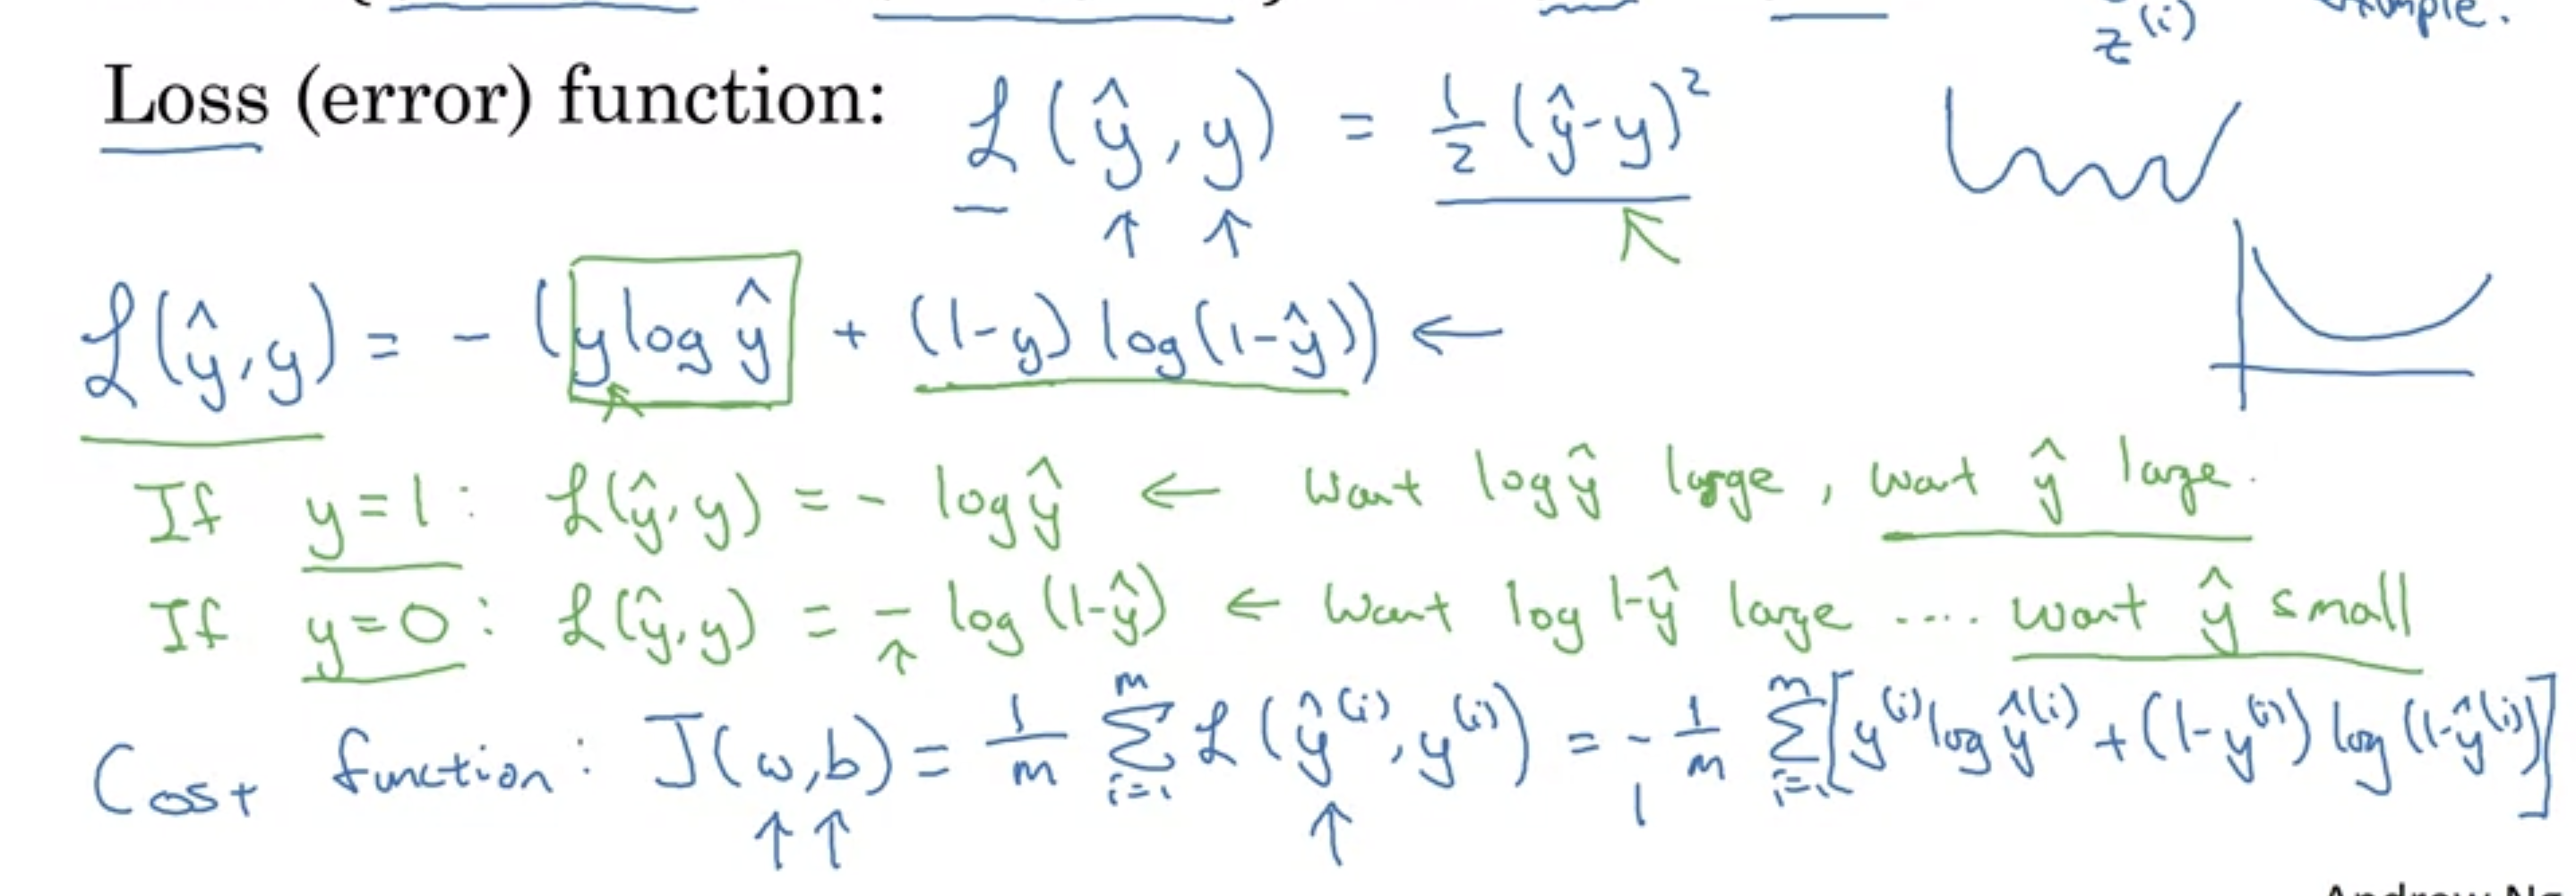 z⁽ⁱ⁾
Loss (error) function: ℒ(ŷ, y) = ½(ŷ-y)²
ℒ(ŷ, y) = - (y log ŷ + (1-y) log(1-ŷ)) ←
If y=1: ℒ(ŷ, y) = - log ŷ ← Want log ŷ large, want ŷ large.
If y=0: ℒ(ŷ, y) = - log (1-ŷ) ← Want log 1-ŷ large .... want ŷ small
Cost function: J(w,b) = 1/m Σᵢ₌₁ᵐ ℒ(ŷ⁽ⁱ⁾, y⁽ⁱ⁾) = - 1/m Σᵢ₌₁ᵐ [y⁽ⁱ⁾ log ŷ⁽ⁱ⁾ + (1-y⁽ⁱ⁾) log (1-ŷ⁽ⁱ⁾)]
Andrew Ng